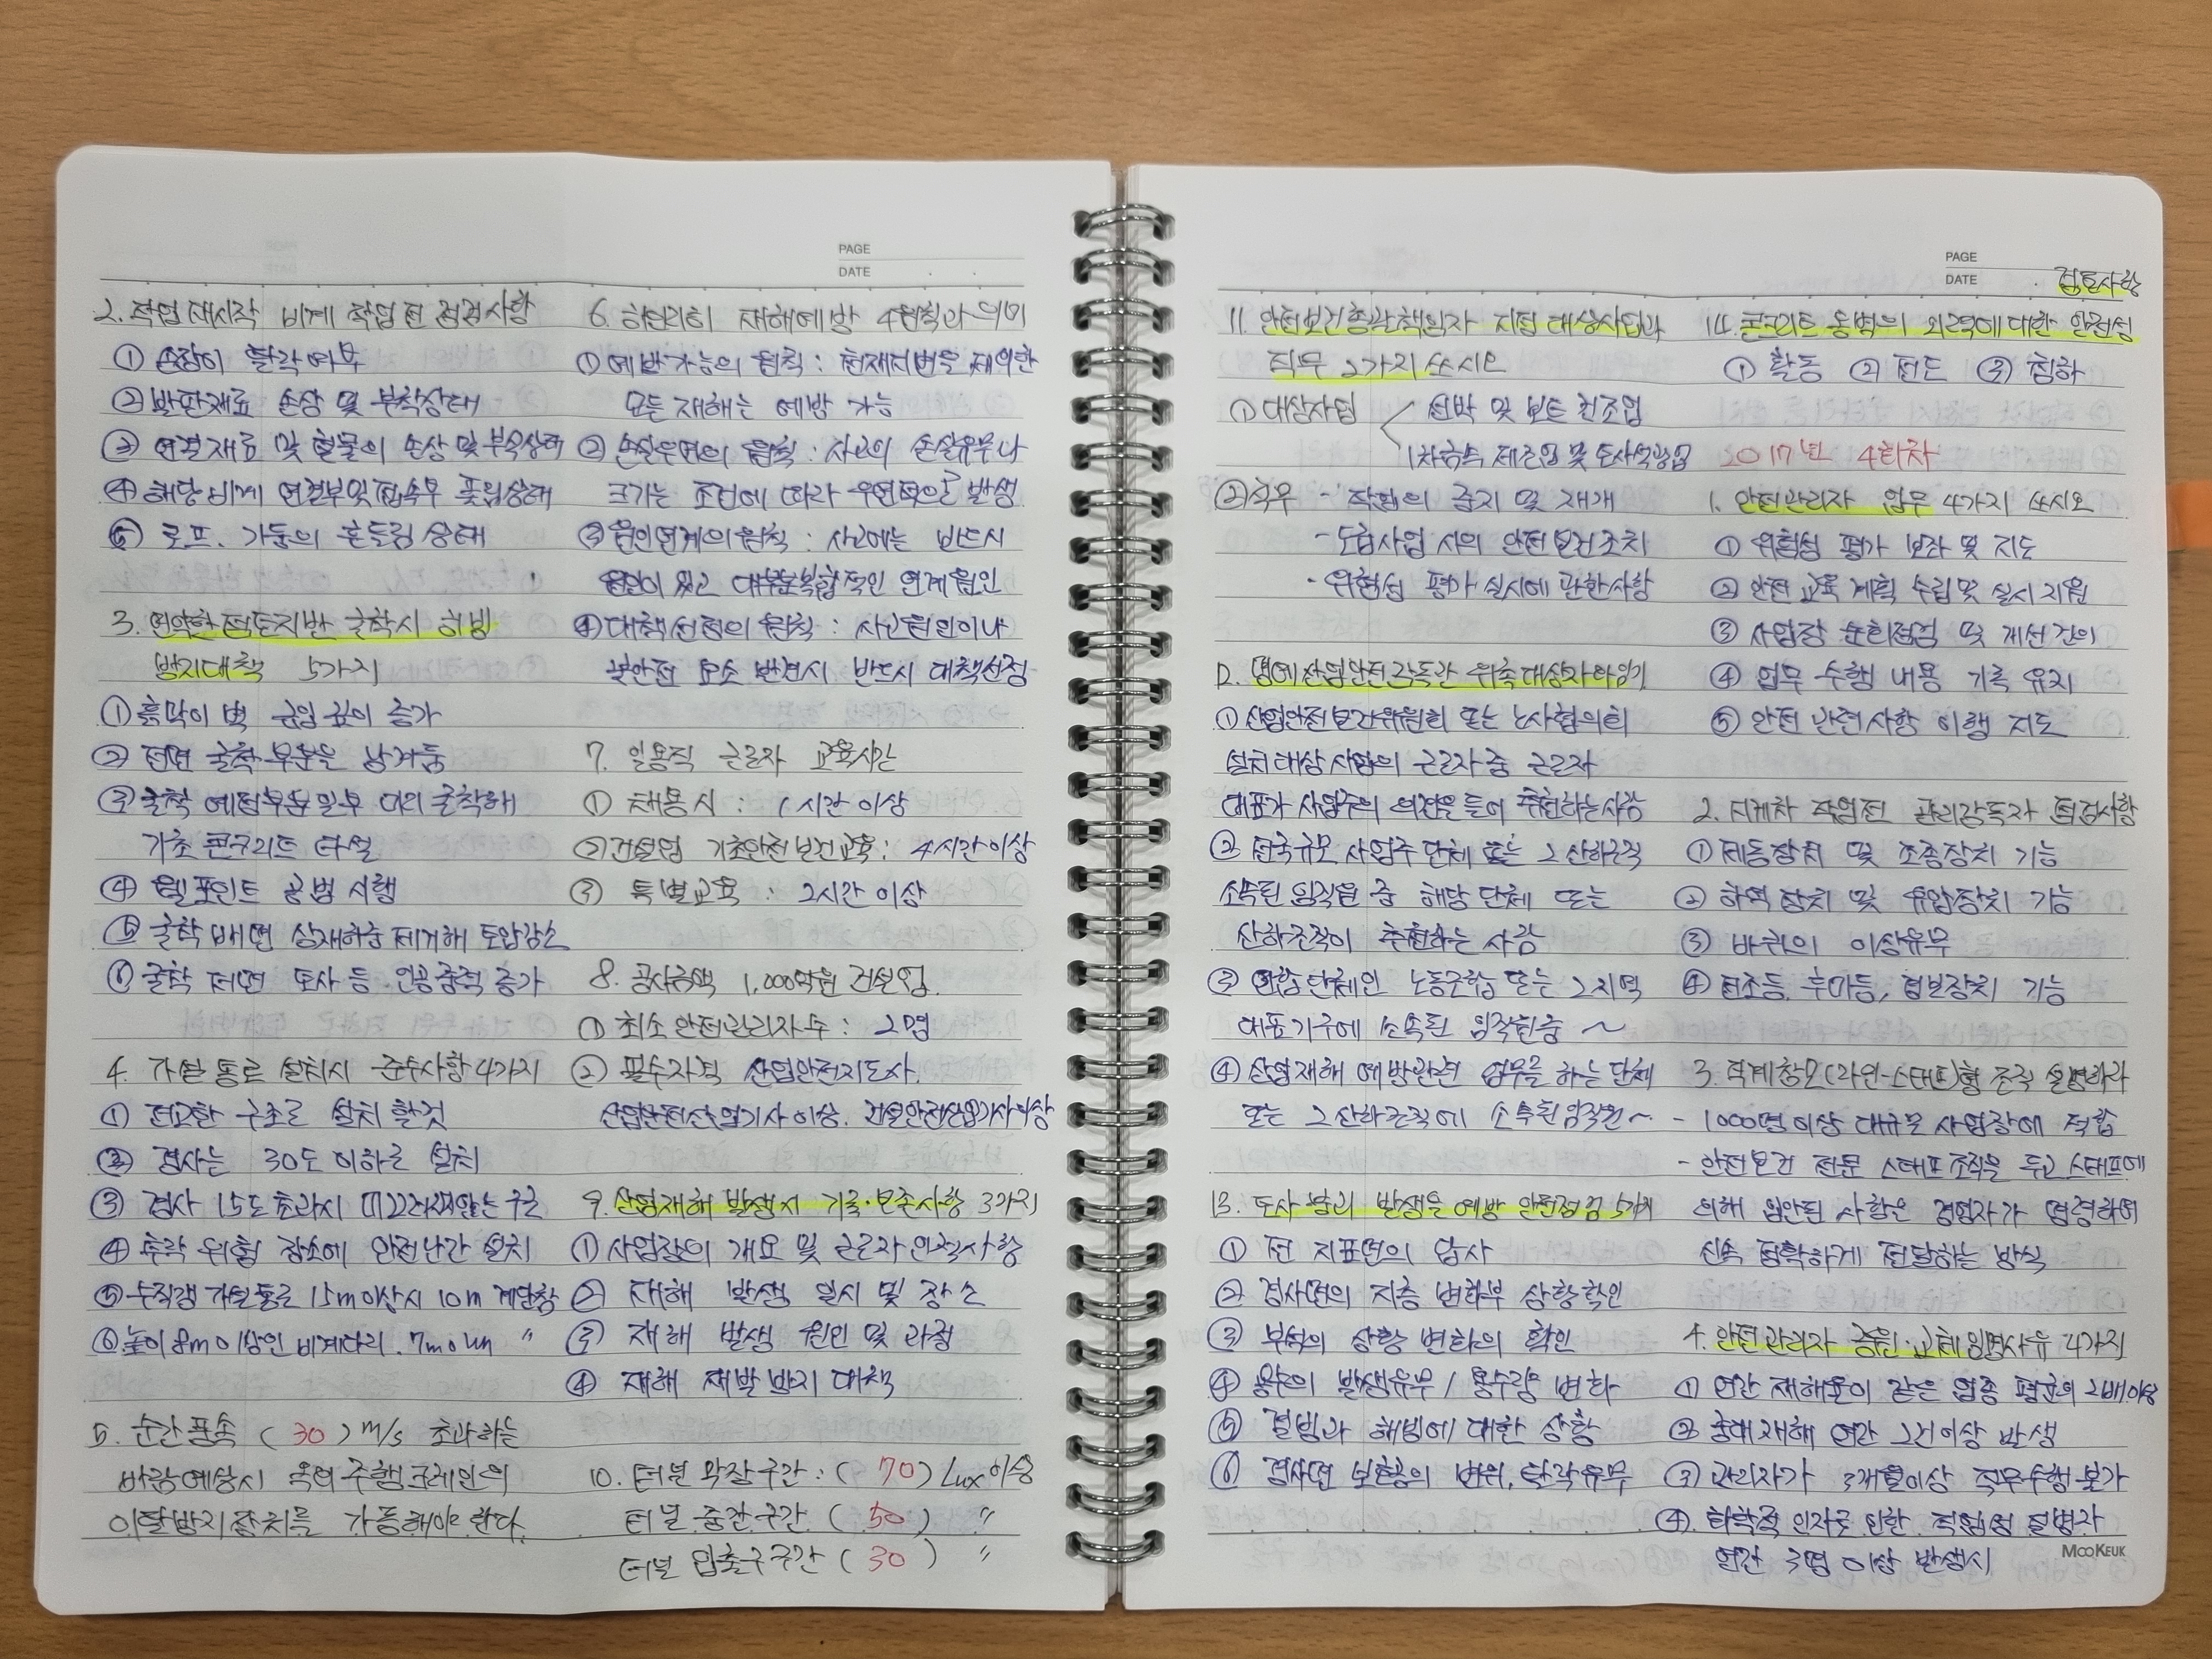 PAGE
DATE
2. 작업 재시작 비계 작업 전 점검사항
① 손잡이 탈락 여부
② 발판재료 손상 및 부착상태
③ 연결재료 및 철물의 손상 및 부식상태
④ 해당 비계 연결부 및 접속부 풀림상태
⑤ 로프. 기둥의 흔들림 상태
3. 연약한 점토지반 굴착시 히빙
방지대책 5가지
① 흙막이 벽 근입 깊이 증가
② 전면 굴착 부분을 남겨둠
③ 굴착 예정부분 일부 미리 굴착해
기초 콘크리트 타설
④ 웰포인트 공법 시행
⑤ 굴착 배면 상재하중 제거해 토압감소
⑥ 굴착 저면 토사 등 인공중력 증가
4. 가설 통로 설치시 준수사항 4가지
① 견고한 구조로 설치 할것
② 경사는 30도 이하로 설치
③ 경사 15도 초과시 미끄러지지않는 구조
④ 추락 위험 장소에 안전난간 설치
⑤ 수직갱 가설통로 15m이상시 10m 계단참
⑥ 높이 8m 이상인 비계다리. 7m이내 〃
5. 순간풍속 ( 30 ) m/s 초과하는
바람예상시 옥외 주행크레인의
이탈방지 장치를 가동해야 한다.
6. 하인리히 재해예방 4원칙과 의미
① 예방가능의 원칙 : 천재지변을 제외한
모든 재해는 예방 가능
② 손실우연의 원칙 : 사고의 손실유무나
크기는 조건에 따라 우연적으로 발생
③ 원인연계의 원칙 : 사고에는 반드시
원인이 있고 대부분 복합적인 연계 원인
④ 대책선정의 원칙 : 사고원인이나
불안전 요소 발견시 반드시 대책선정
7. 일용직 근로자 교육시간
① 채용시 : 1시간 이상
② 건설업 기초안전보건교육 : 4시간 이상
③ 특별교육 : 2시간 이상
8. 공사금액 1,000억원 건설업.
① 최소 안전관리자 수 : 2명
② 필수자격 산업안전지도사.
산업안전산업기사 이상. 건설안전산업기사이상
9. 산업재해 발생시 기록·보존사항 3가지
① 사업장의 개요 및 근로자 인적사항
② 재해 발생 일시 및 장소
③ 재해 발생 원인 및 과정
④ 재해 재발 방지 대책
10. 터널 막장구간 : ( 70 ) Lux 이상
터널 중간구간 ( 50 ) 〃
터널 입출구구간 ( 30 ) 〃
PAGE
DATE
검토사항
11. 안전보건총괄책임자 지정 대상사업과
직무 2가지 쓰시오
① 대상사업 선박 및 보트 건조업
1차금속 제조업 및 토사석광업
② 직무 - 작업의 중지 및 재개
- 도급사업 시의 안전보건조치
- 위험성 평가 실시에 관한사항
12. 명예산업안전감독관 위촉대상자
① 산업안전보건위원회 또는 노사협의회
설치대상 사업의 근로자 중 근로자
대표가 사업주의 의견을 들어 추천하는사람
② 전국규모 사업주 단체 또는 그 산하조직
소속된 임직원 중 해당 단체 또는
산하조직이 추천하는 사람
③ 연합단체인 노동조합 또는 그 지역
대표기구에 소속된 임직원중 ~
④ 산업재해 예방관련 업무를 하는 단체
또는 그 산하조직에 소속된 임직원 ~
13. 토사 붕괴 발생을 예방 안전점검 5가지
① 전 지표면의 답사
② 경사면의 지층 변화부 상황확인
③ 부석의 상황 변화의 확인
④ 용수의 발생유무 / 용수량 변화
⑤ 결빙과 해빙에 대한 상황
⑥ 경사면 보호공의 변위, 탈락유무
14. 콘크리트 옹벽의 외력에 대한 안전성
① 활동 ② 전도 ③ 침하
2017년 4회차
1. 안전관리자 업무 4가지 쓰시오
① 위험성 평가 보좌 및 지도
② 안전 교육 계획 수립 및 실시 지원
③ 사업장 순회점검 및 개선 건의
④ 업무 수행 내용 기록 유지
⑤ 안전 관련사항 이행 지도
2. 지게차 작업전 관리감독자 점검사항
① 제동장치 및 조종장치 기능
② 하역 장치 및 유압장치 기능
③ 바퀴의 이상유무
④ 전조등, 후미등, 경보장치 기능
3. 직계참모(라인-스태프)형 조직 설명하라
- 1000명이상 대규모 사업장에 적합
- 안전보건 전문 스태프 조직을 두고 스태프에
의해 입안된 사항은 경영자가 명령하며
신속 정확하게 전달하는 방식
4. 안전관리자 증원·교체임명사유 4가지
① 연간 재해율이 같은 업종 평균의 2배이상
② 중대재해 연간 2건이상 발생
③ 관리자가 3개월이상 직무수행 불가
④ 화학적 인자로 인한 직업성 질병자
연간 3명 이상 발생시
MOOKEUK